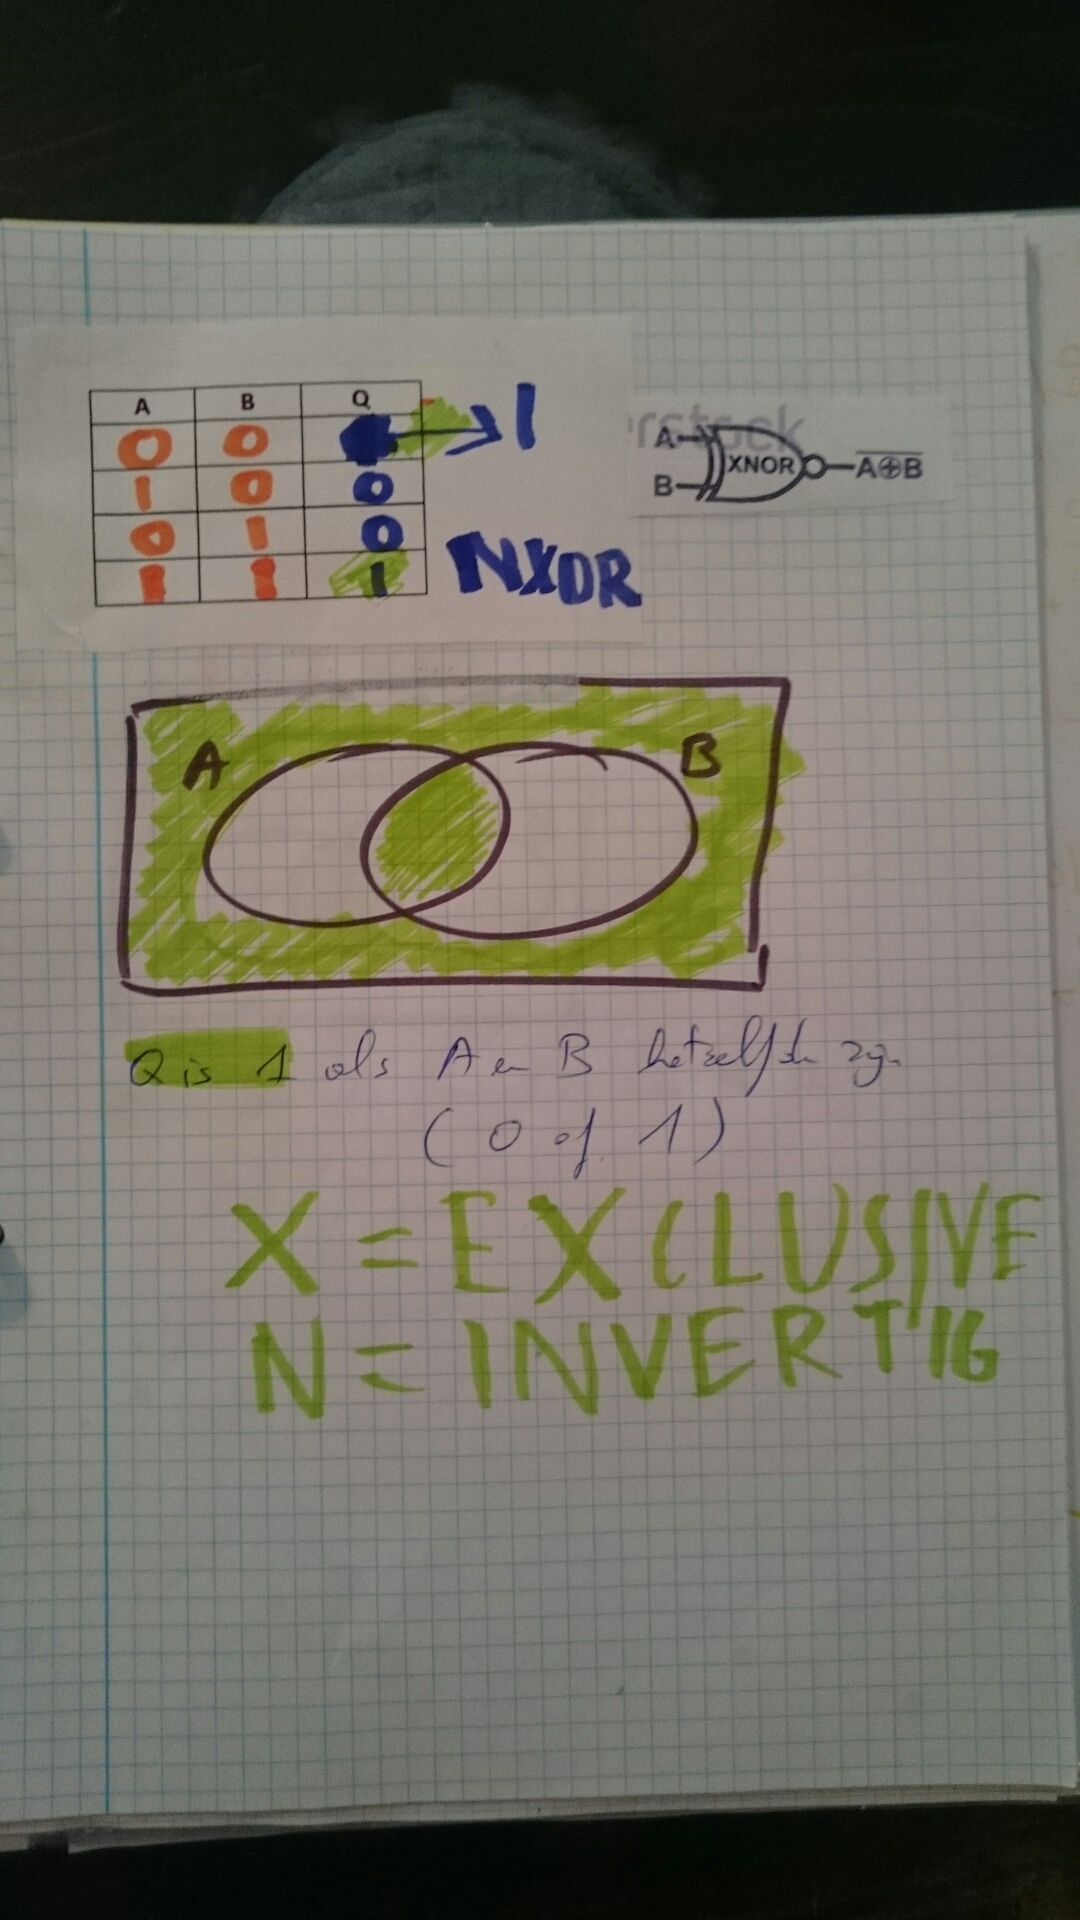 A B Q
0 0 1
1 0 0
0 1 0
1 1 1
NXOR
rstock
A
XNOR
A⊕B
B
A B
Q is 1 als A en B hetzelfde zijn
(0 of 1)
X = EXCLUSIVE
N = INVERT'IG